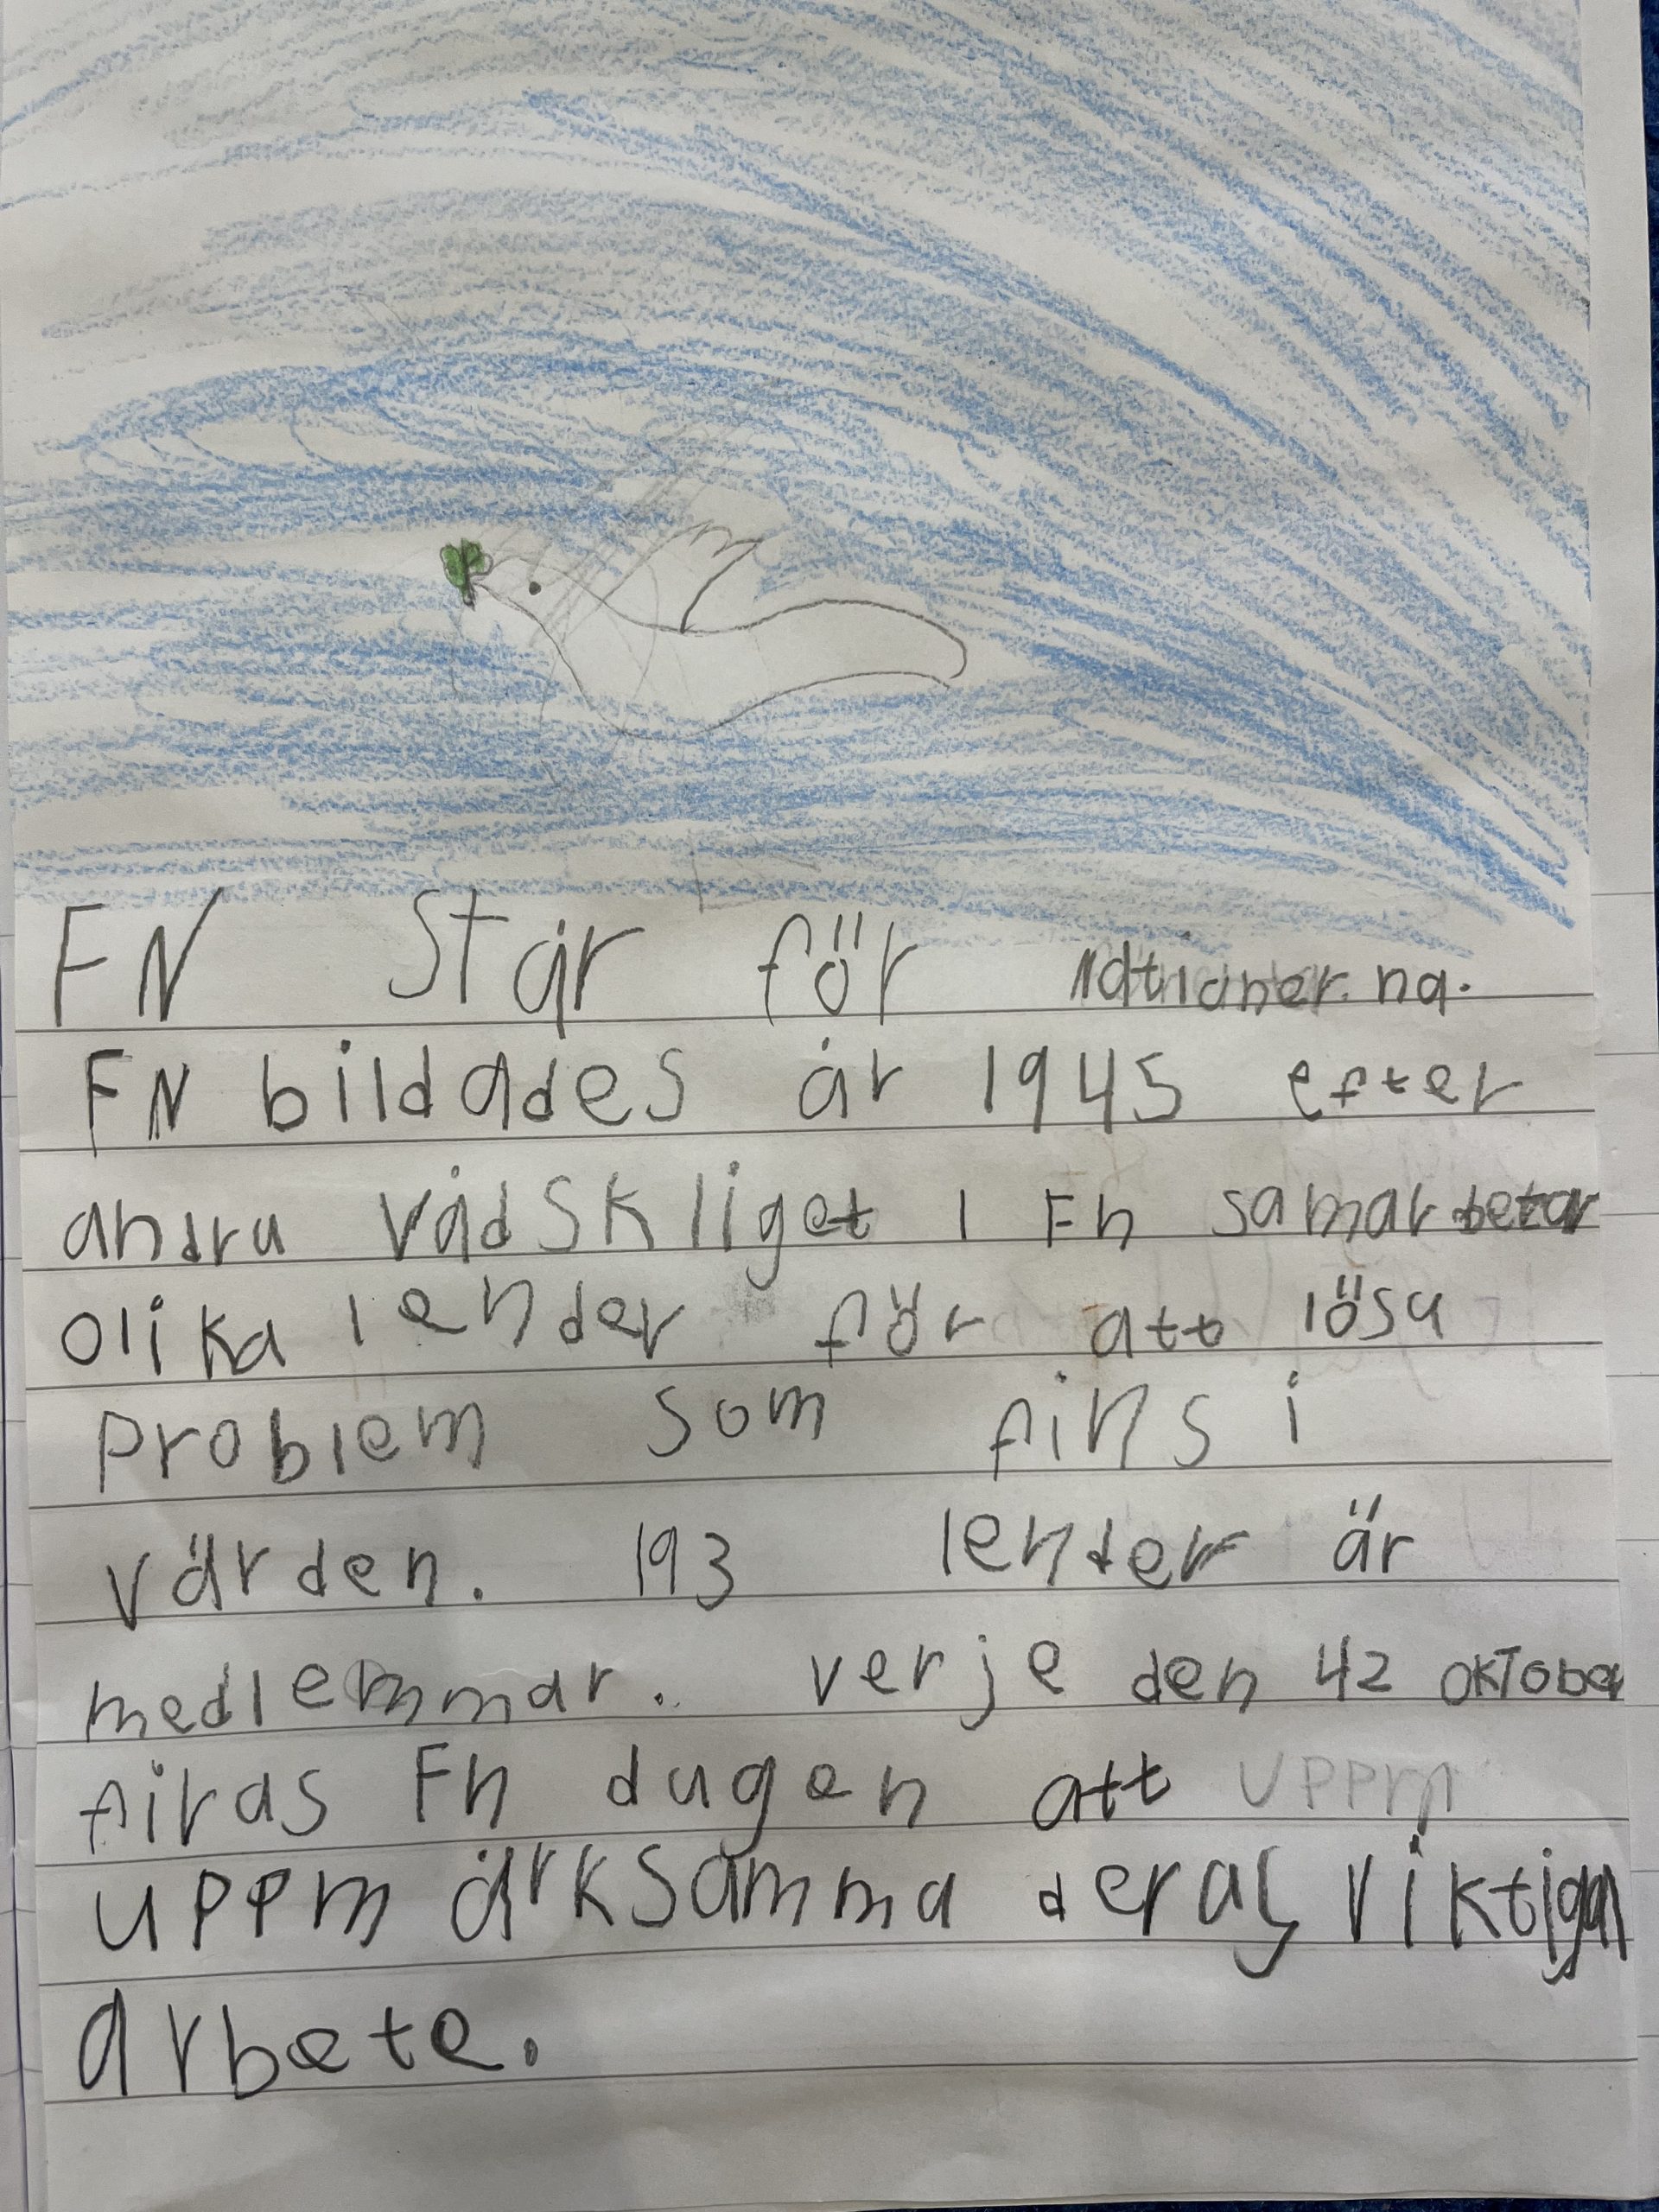 FN Står för nationer na.
FN bildades år 1945 efter
andra vådskliget I Fn samarbetar
olika lender för att lösa
Problem som fins i
värden. 193 lender är
medlemmar. verje den 42 oktober
firas Fn dagen att uppm
uppm ärksamma deras viktiga
arbete.